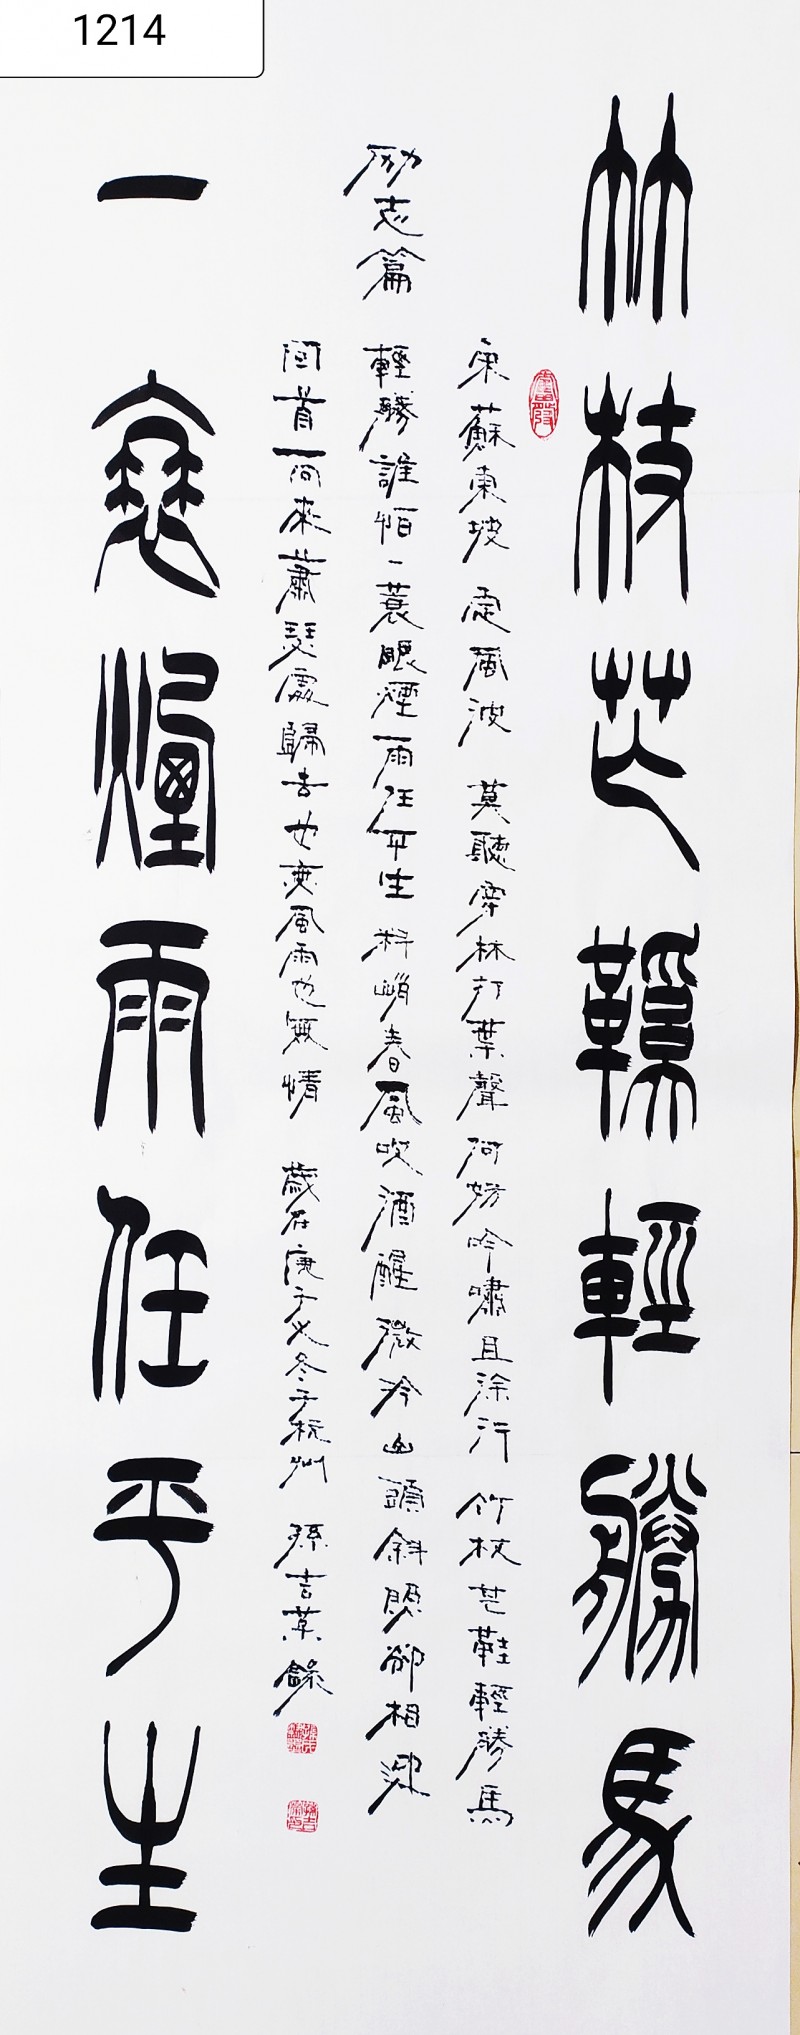 竹杖芒鞵輕勝馬
宋蘇東坡 定風波 莫聽穿林打葉聲 何妨吟嘯且徐行 竹杖芒鞋輕勝馬
励志篇
輕勝誰怕一蓑煙雨任平生 料峭春風吹酒醒微冷山頭斜照卻相迎
回首向來蕭瑟處歸去也無風雨也無情 歲在庚子之冬于杭州 孫吉草錄
一衰煙雨任平生
1214